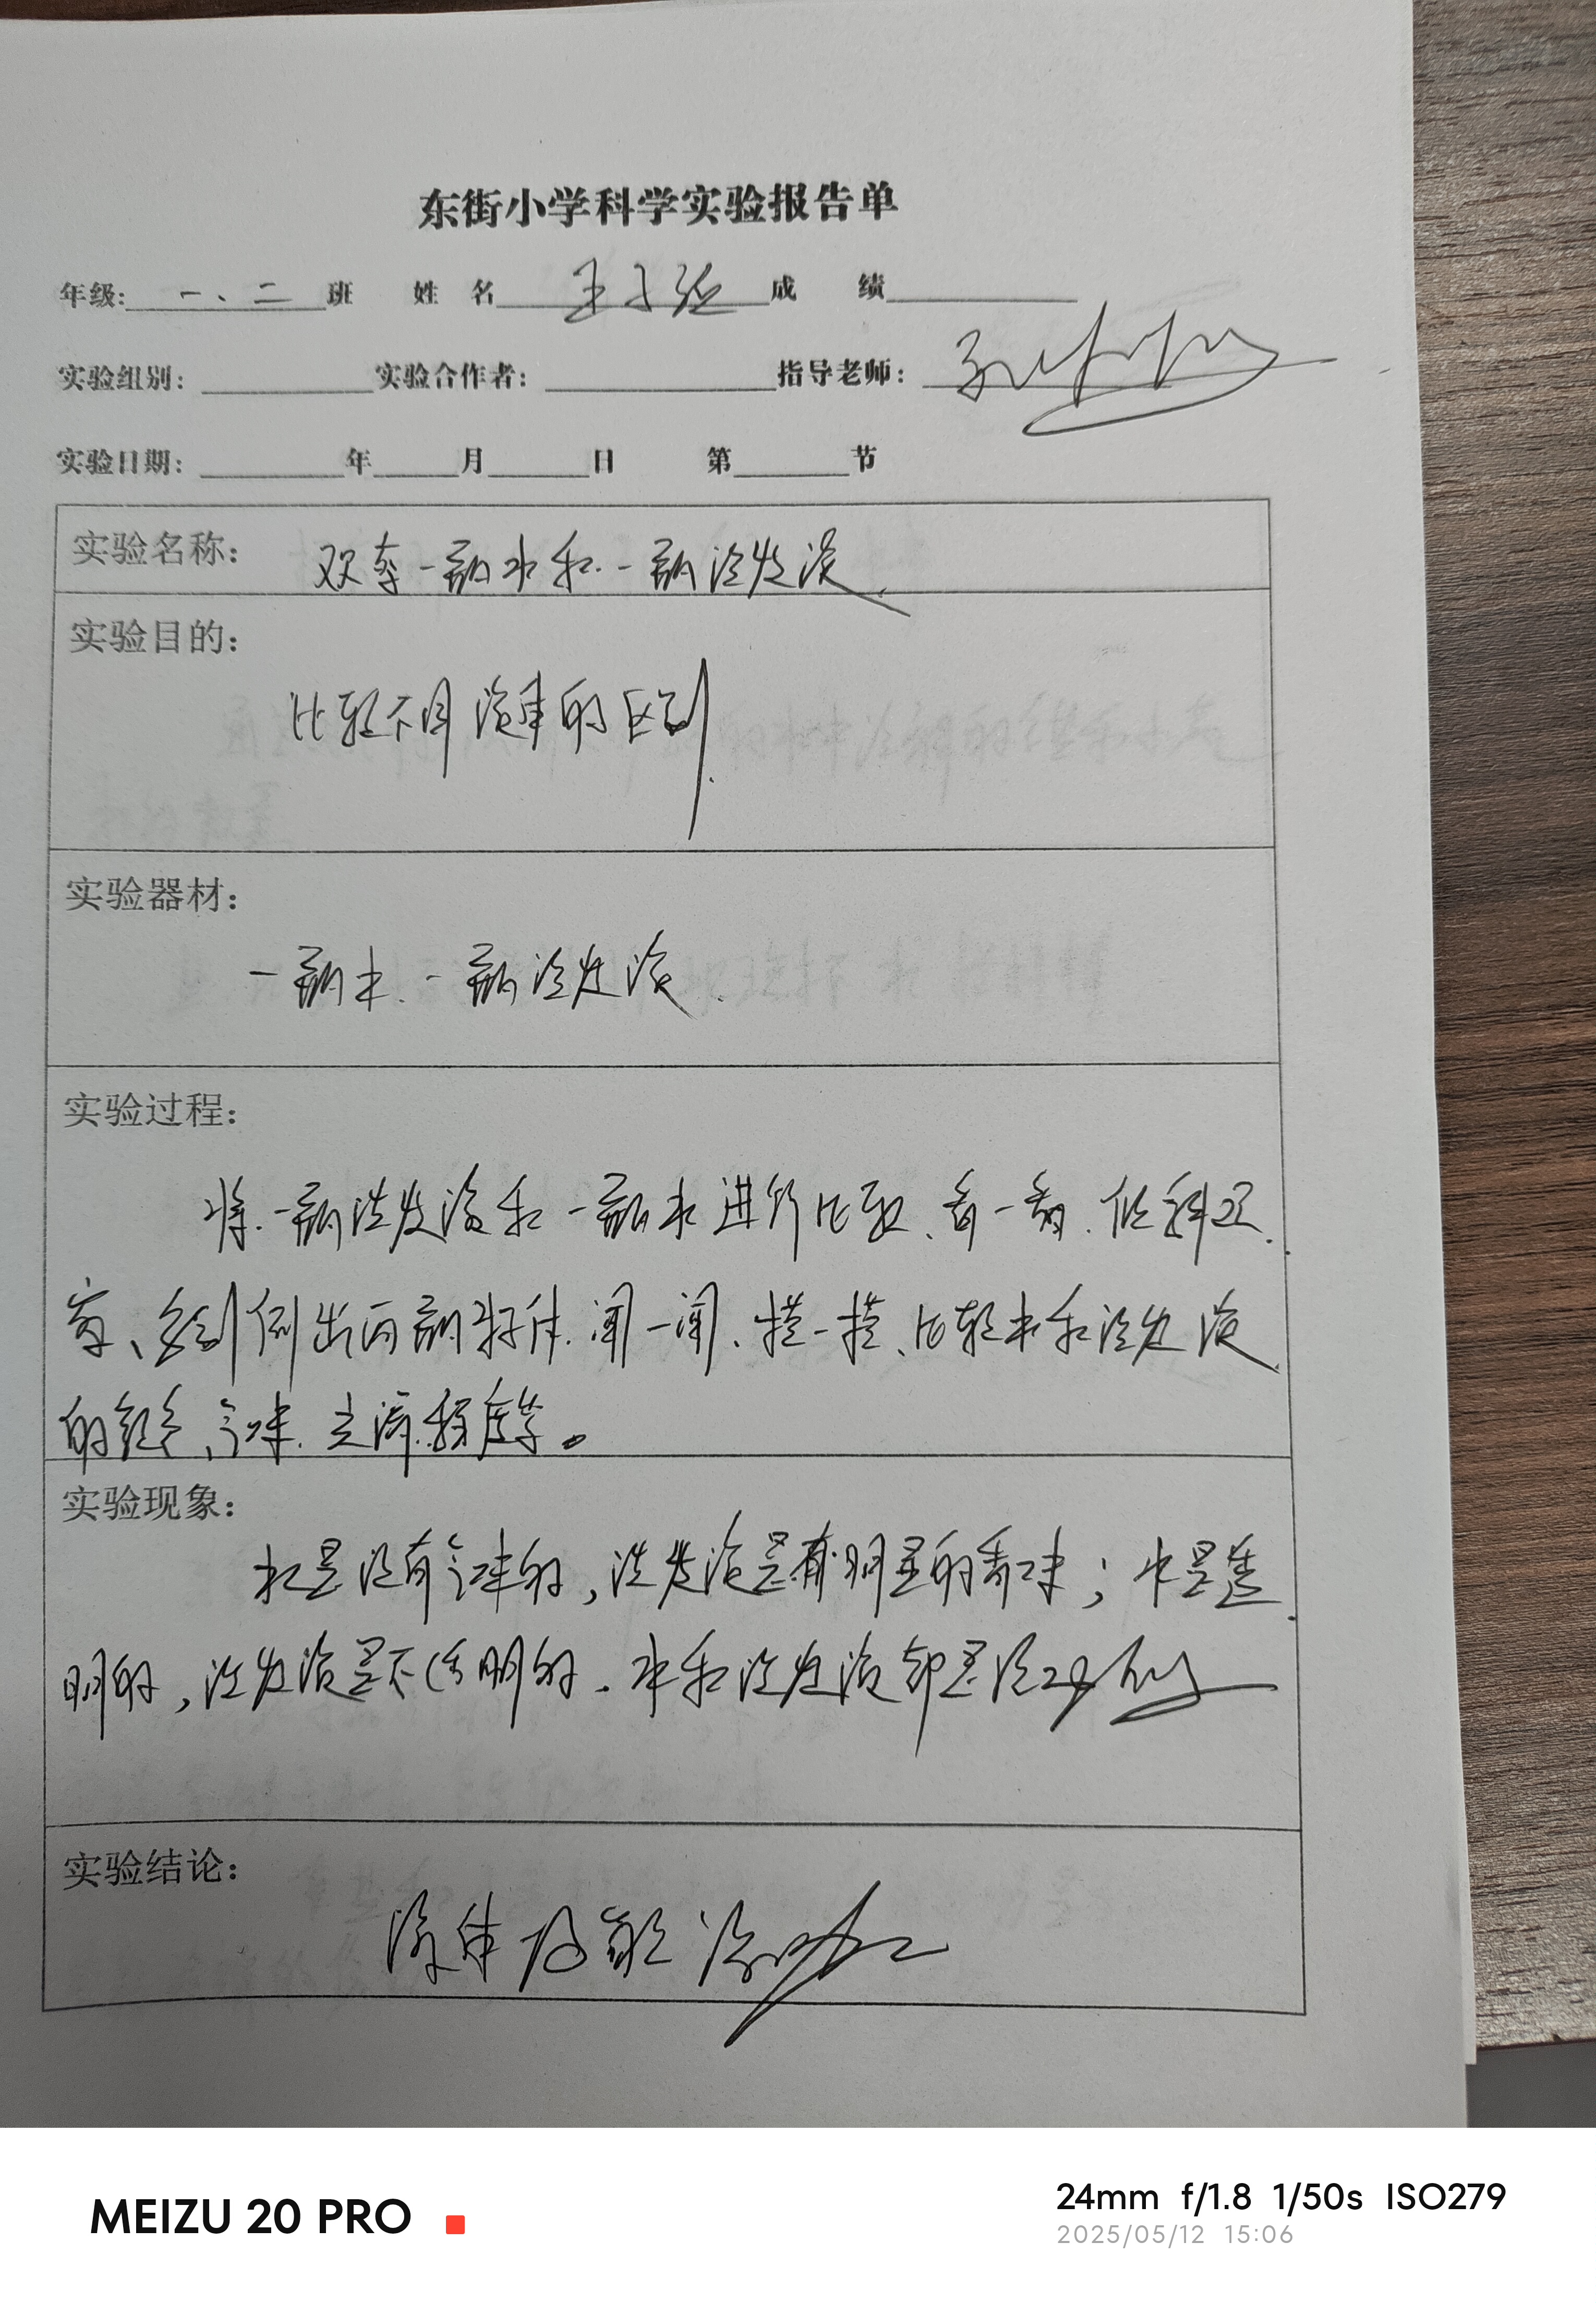 东街小学科学实验报告单
年级: 一、二 班 姓 名 王 成 绩
实验组别: 实验合作者: 指导老师:
实验日期: 年 月 日 第 节
实验名称: 观察一瓶水和一瓶洗发液
实验目的:
比较不同液体的区别.
实验器材:
一瓶水、一瓶洗发液.
实验过程:
将一瓶洗发液和一瓶水进行比较、看一看、
分别倒出两瓶液体、闻一闻、摸一摸、比较水和洗发液
的颜色、气味、 程度等。
实验现象:
水是没有气味的,洗发液是有明显的香味;水是透
明的,洗发液是不透明的.水和洗发液都是
实验结论:
液体
MEIZU 20 PRO
24mm f/1.8 1/50s ISO279
2025/05/12 15:06